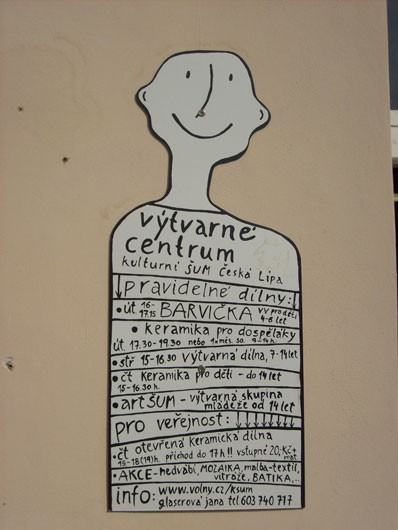 výtvarné
centrum
kulturní ŠUM Česká Lípa
pravidelné dílny:
• út 16-17.15 BARVIČKA VV pro děti 4-6 let
• keramika pro dospěláky
út 17.30-19.30 nebo 1x měs. so. 9-14h.
• stř 15-16.30 výtvarná dílna, 7-14 let
• čt keramika pro děti - do 14 let
15-16.30 h.
• artŠUM - výtvarná skupina
mládeže od 14 let
pro veřejnost:
• čt otevřená keramická dílna
15-18(19)h. příchod do 17h!! vstupné 20,-Kč+ mat.
• AKCE - hedvábí, MOZAIKA, malba-textil,
vitráže, BATIKA,..
info: www.volny.cz/ksum
glaserová jana tel 603 740 717